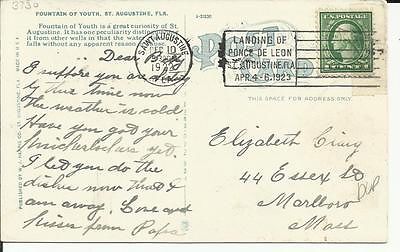 3730
FOUNTAIN OF YOUTH, ST. AUGUSTINE, FLA.
Fountain of Youth is a great curiosity of
St. Augustine. It has the peculiarity
from other wells in the
without any apparent
POST
SAINT AUGUSTINE
FEB 10
1923
FLA.
LANDING OF
PONCE DE LEON
ST. AUGUSTINE, FLA
APR. 4-6, 1923
U.S. POSTAGE
THIS SPACE FOR ADDRESS
Dear
I suppose you are
by this time now
the weather is cold.
Have you got your
knickerbockers yet.
I let you do the
dishes now that I
am away. Love and
kisses from Papa
Elizabeth
44 Essex St
Marlboro
Mass